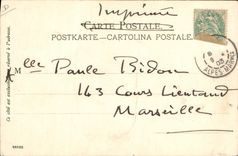 Imprimé
CARTE POSTALE
POSTKARTE - CARTOLINA POSTALE
Mlle Paule Bidon
163 Cours Lieutaud
Marseille
Ce côté est exclusivement réservé à l'adresse.
ALPES MARIT